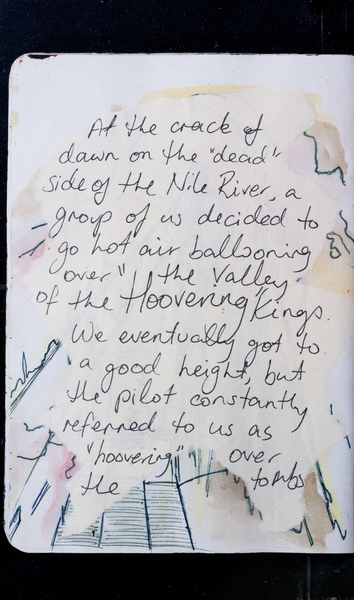 At the crack of
dawn on the "dead"
side of the Nile River, a
group of us decided to
go hot air ballooning
over " the Valley
of the Hoovering Kings.
We eventually got to
a good height, but
the pilot constantly
referred to us as
"hoovering" over
the tombs